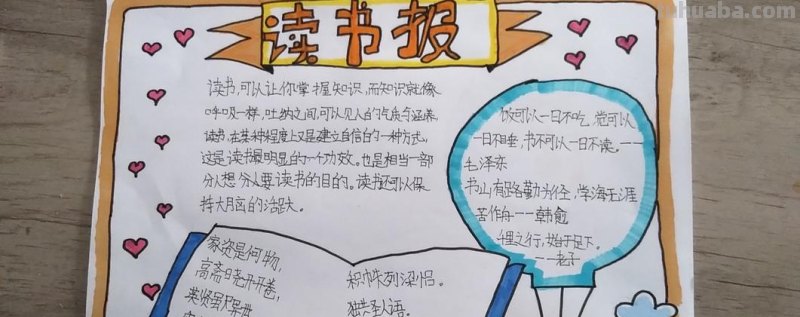 读书报
读书,可以让你掌握知识,而知识就像
呼吸一样,吐纳之间,可以见人的气质与涵养。
读书,在某种程度上又是建立自信的一种方式,
这是读书最明显的一个功效。也是相当一部
分人想分人要读书的目的。读书还可以保
持大脑的活跃。
饭可以一日不吃,觉可以
一日不睡,书不可以一日不读。——
毛泽东
书山有路勤为径,学海无涯
苦作舟——韩愈
里之行,始于足下。
——老子
家资是何物,
高斋晓开卷,
英贤虽异世
积帙列梁侣。
独共圣人语。
huaba.com